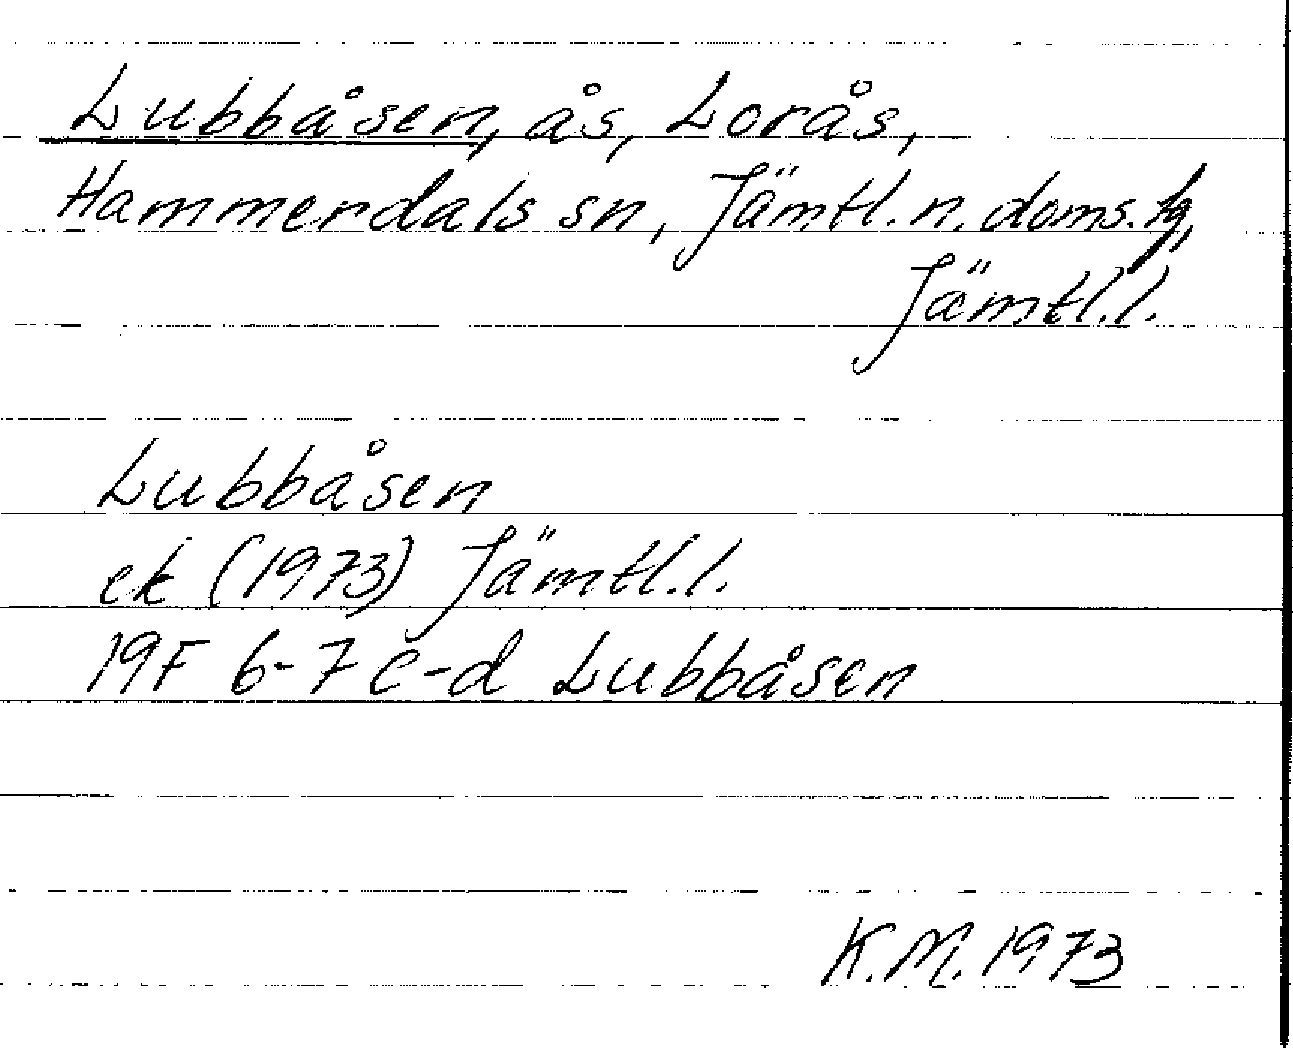 Lubbåsen, ås, Lorås,
Hammerdals sn, Jämtl. n. doms. hg,
Jämtl. l.
Lubbåsen
ek (1973) Jämtl. l.
19F 6-7 c-d Lubbåsen
K.M. 1973